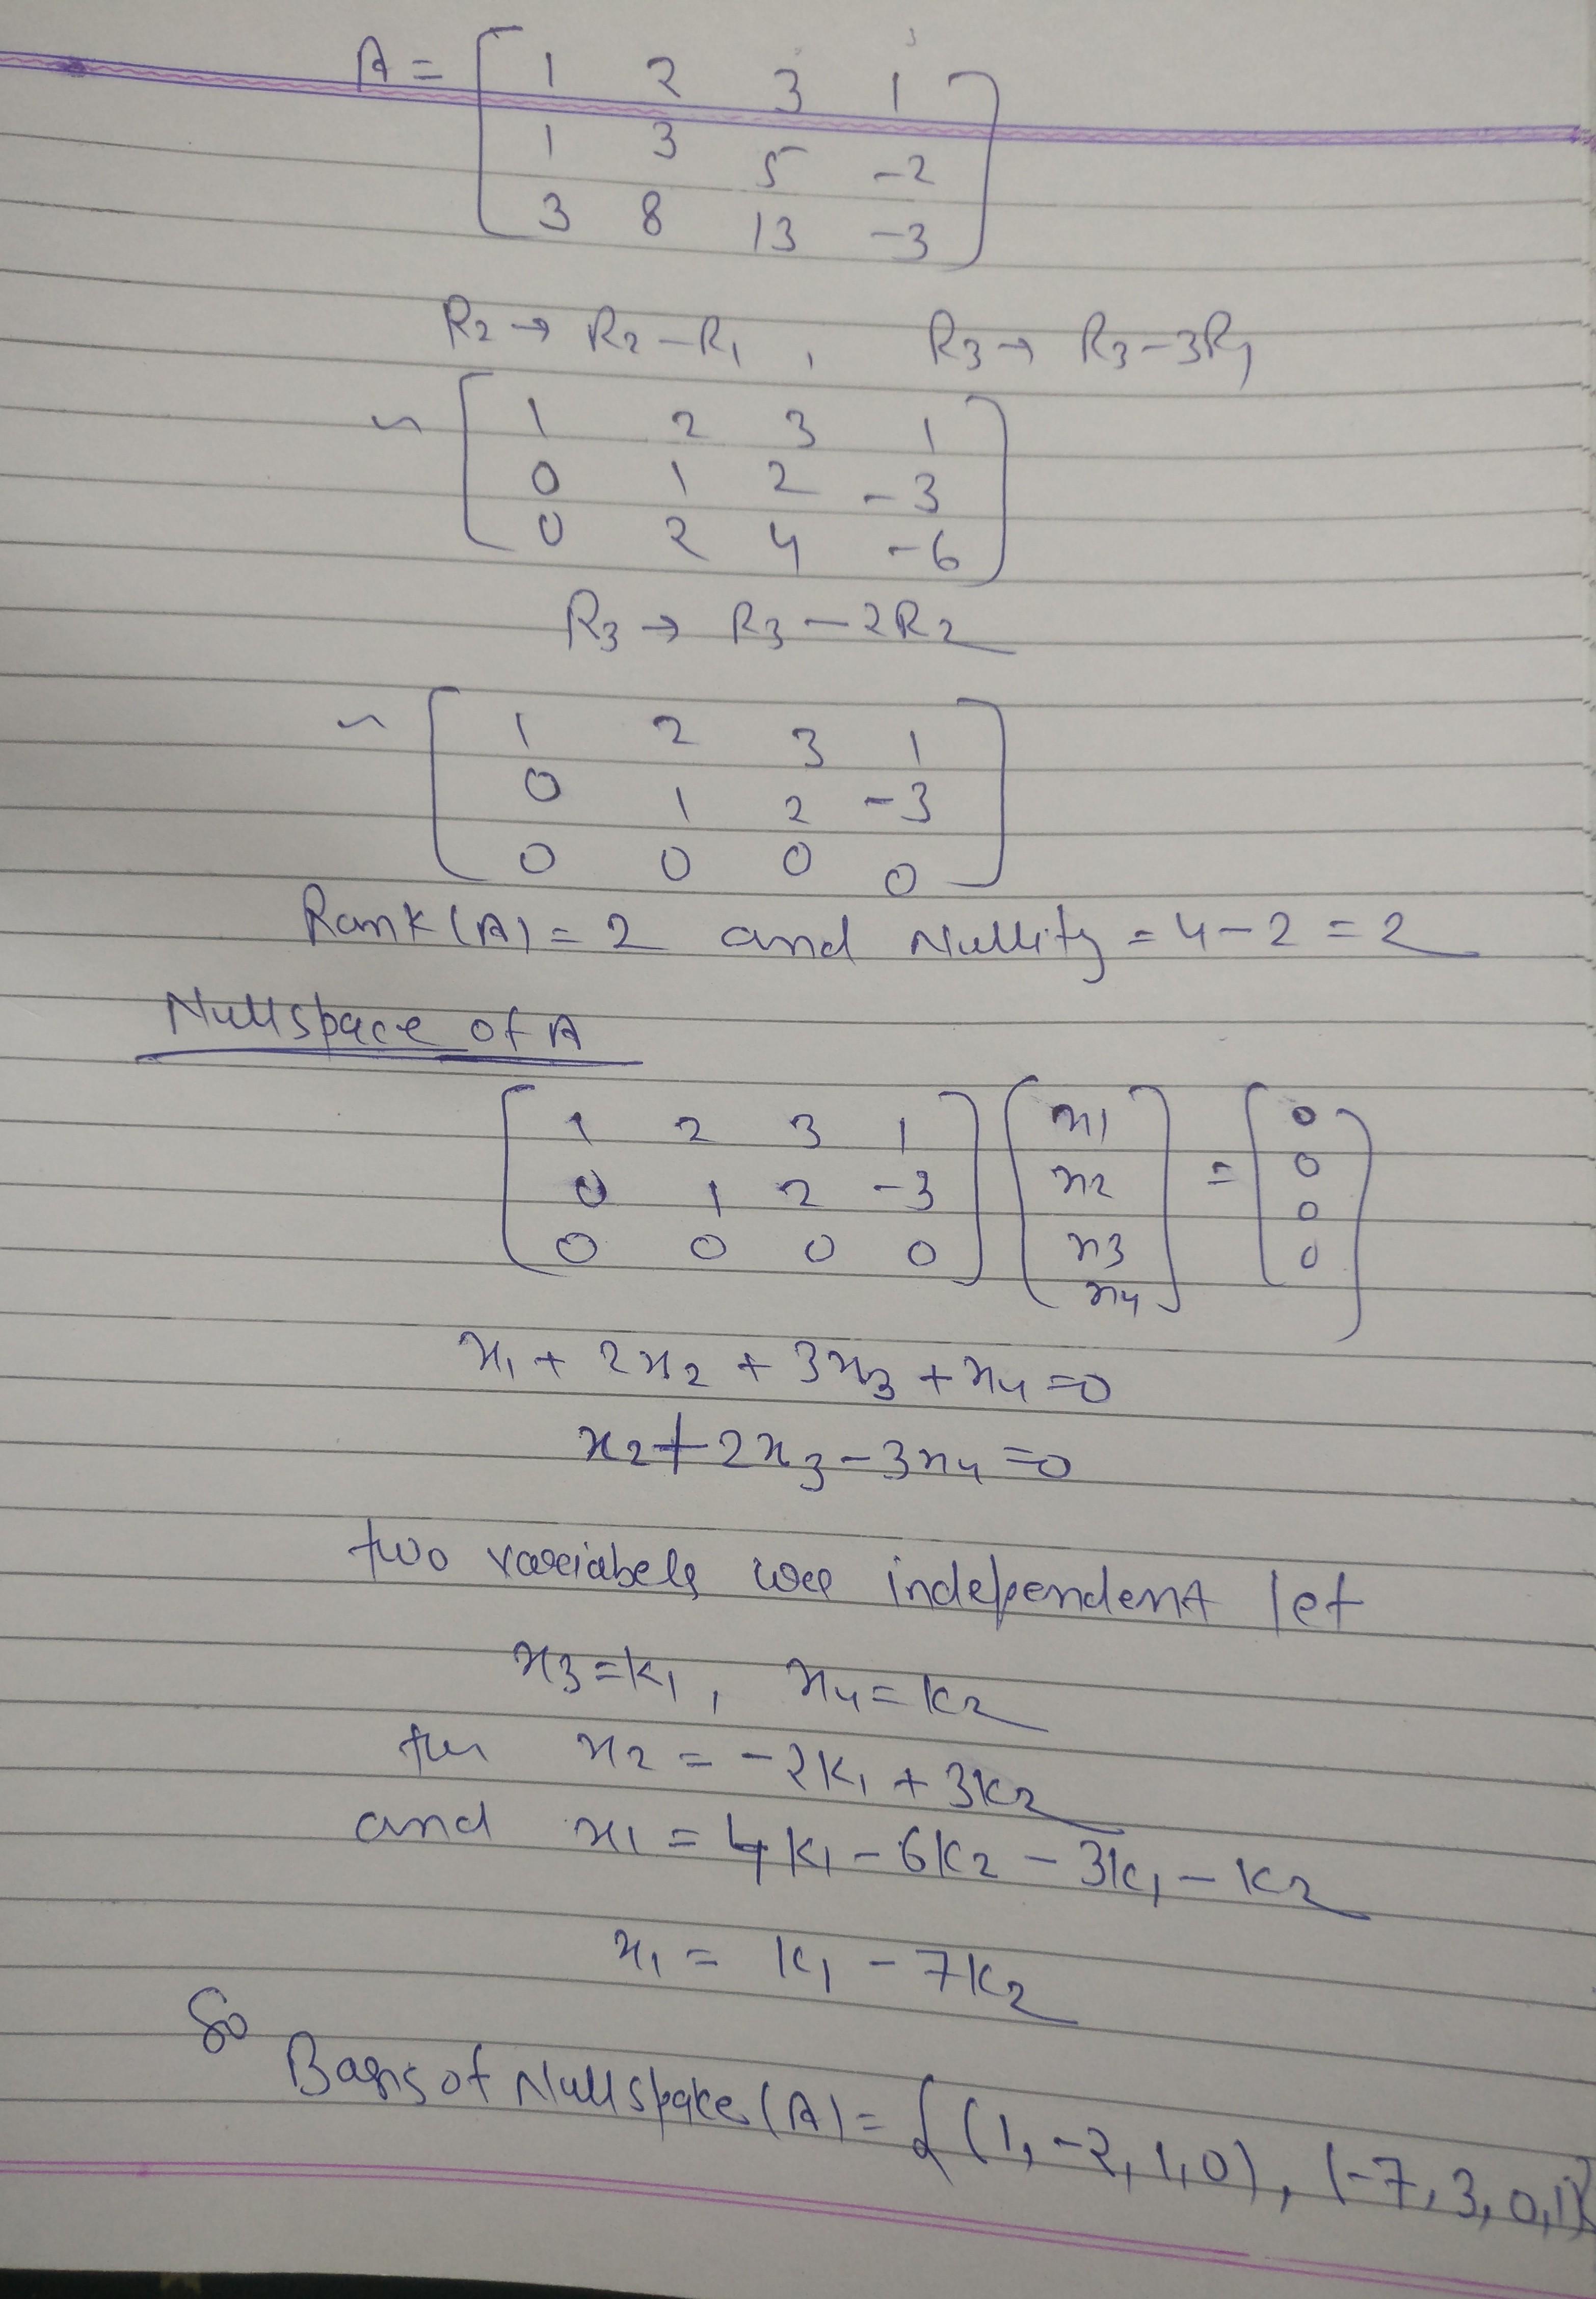 A = [ 1 2 3 1
1 3 5 -2
3 8 13 -3 ]
R2 → R2 - R1 , R3 → R3 - 3R1
~ [ 1 2 3 1
0 1 2 -3
0 2 4 -6 ]
R3 → R3 - 2R2
~ [ 1 2 3 1
0 1 2 -3
0 0 0 0 ]
Rank(A) = 2 and Nullity = 4-2 = 2
Nullspace of A
[ 1 2 3 1 ] [ x1 ] = [ 0 ]
[ 0 1 2 -3 ] [ x2 ] [ 0 ]
[ 0 0 0 0 ] [ x3 ] [ 0 ]
[ x4 ] [ 0 ]
x1 + 2x2 + 3x3 + x4 = 0
x2 + 2x3 - 3x4 = 0
two variabels independent let
x3 = k1 , x4 = k2
x2 = -2k1 + 3k2
and x1 = 4k1 - 6k2 - 3k1 - k2
x1 = k1 - 7k2
So
Basis of Nullspace(A) = { (1, -2, 1, 0), (-7, 3, 0, 1)}